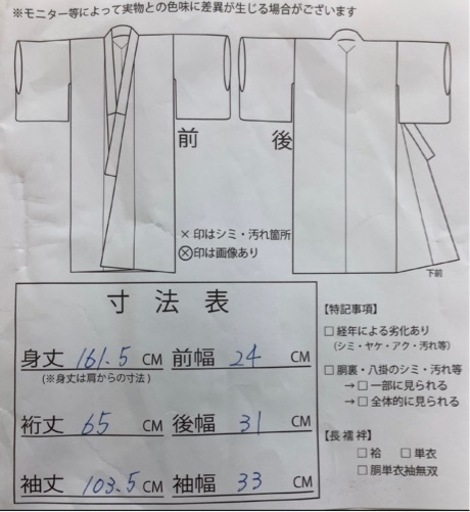 ※モニター等によって実物との色味に差異が生じる場合がございます
前
後
×印はシミ・汚れ箇所
⊗印は画像あり
下前
寸法表
身丈 161.5 CM 前幅 24 CM
(※身丈は肩からの寸法)
裄丈 65 CM 後幅 31 CM
袖丈 103.5 CM 袖幅 33 CM
【特記事項】
□ 経年による劣化あり
(シミ・ヤケ・アク・汚れ等)
□ 胴裏・八掛のシミ・汚れ等
→ □ 一部に見られる
→ □ 全体的に見られる
【長襦袢】
□ 袷 □ 単衣
□ 胴単衣袖無双